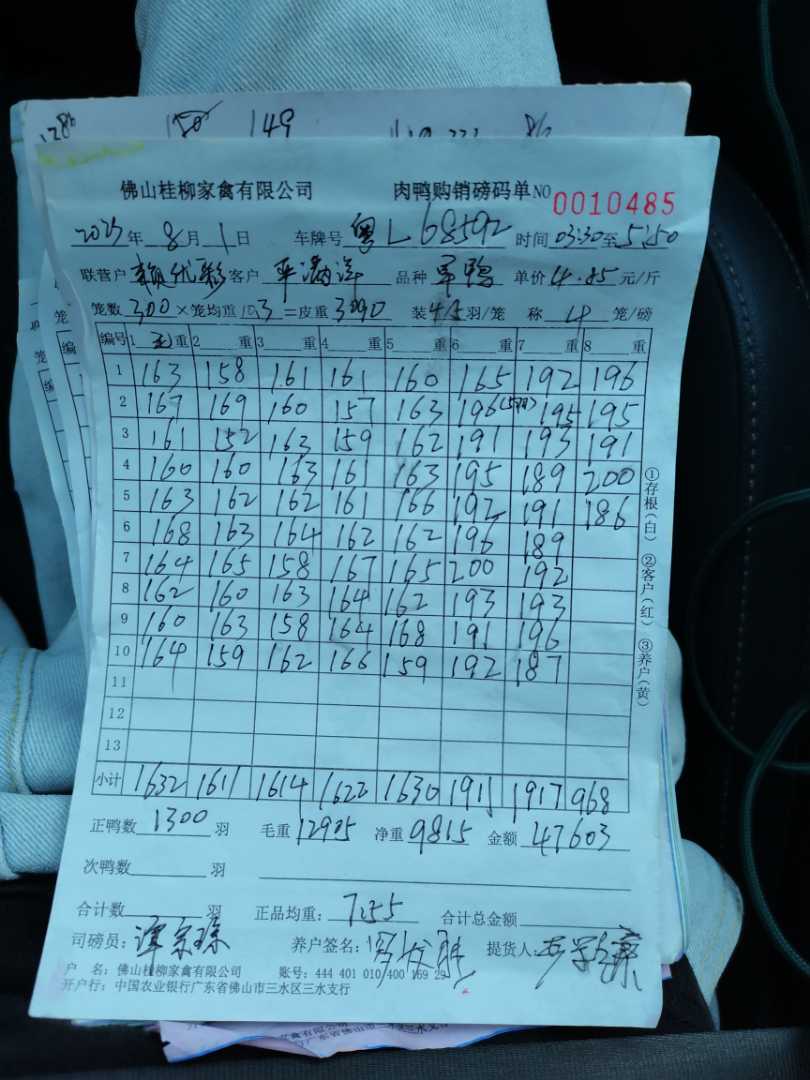 1286 150 149 86
佛山桂柳家禽有限公司 肉鸭购销磅码单NO 0010485
2023年 8月 1日 车牌号 粤L68592 时间 03:30至5:50
联营户 赖优彩 客户 平满洋 品种 单价 4.85 元/斤
笼数 300 ×笼均重 10.3 =皮重 3090 装 4/5 羽/笼 称 4 笼/磅
编号 1 毛重 2 重 3 重 4 重 5 重 6 重 7 重 8 重
1 163 158 161 161 160 165 192 196
2 167 169 160 157 163 196(5羽) 195 195
3 161 152 163 159 162 191 193 191
4 160 160 163 161 163 195 189 200
5 163 162 162 161 166 192 191 186
6 168 163 164 162 162 196 189
7 164 165 158 167 165 200 192
8 162 160 163 164 162 193 193
9 160 163 158 164 168 191 196
10 164 159 162 166 159 192 187
11
12
13
小计 1632 1611 1614 1622 1630 1911 1917 968
正鸭数 1300 羽 毛重 12905 净重 9815 金额 47603
次鸭数 羽
合计数 羽 正品均重: 7.55 合计总金额
司磅员: 养户签名: 提货人:
户 名: 佛山桂柳家禽有限公司 账号: 444 401 010 400 169 29
开户行: 中国农业银行广东省佛山市三水区三水支行
①存根(白) ②客户(红) ③养户(黄)